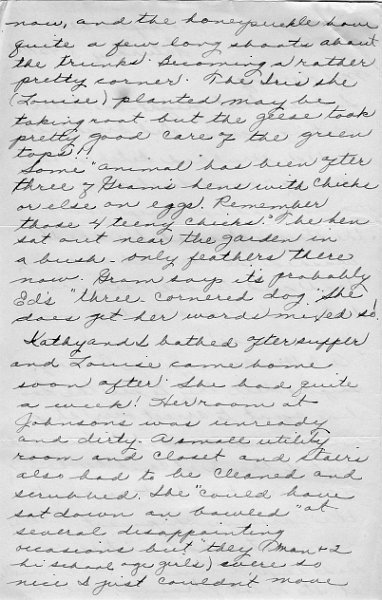 now, and the honeysuckle have
quite a few long shoots about
the trunks. Becoming a rather
pretty corner. The Iris she
(Louise) planted may be
taking root but the geese took
pretty good care of the green
tops!!
Some "animal" has been after
three of Gram's hens with chicks
or else on eggs. Remember
those 4 teeny chicks." The hen
sat out near the garden in
a bush - only feathers there
now. Gram says it's probably
Ed's "three cornered dog" She
does get her words mixed so!
Kathy and I bathed after supper
and Louise came home
soon after. She had quite
a week! Her room at
Johnsons was unready
and dirty. A small utility
room and closet and stairs
also had to be cleaned and
scrubbed. She "could have
sat down an bawled" at
several disappointing
occasions but "they (man + 2
hi school age girls) were so
nice I just couldn't move